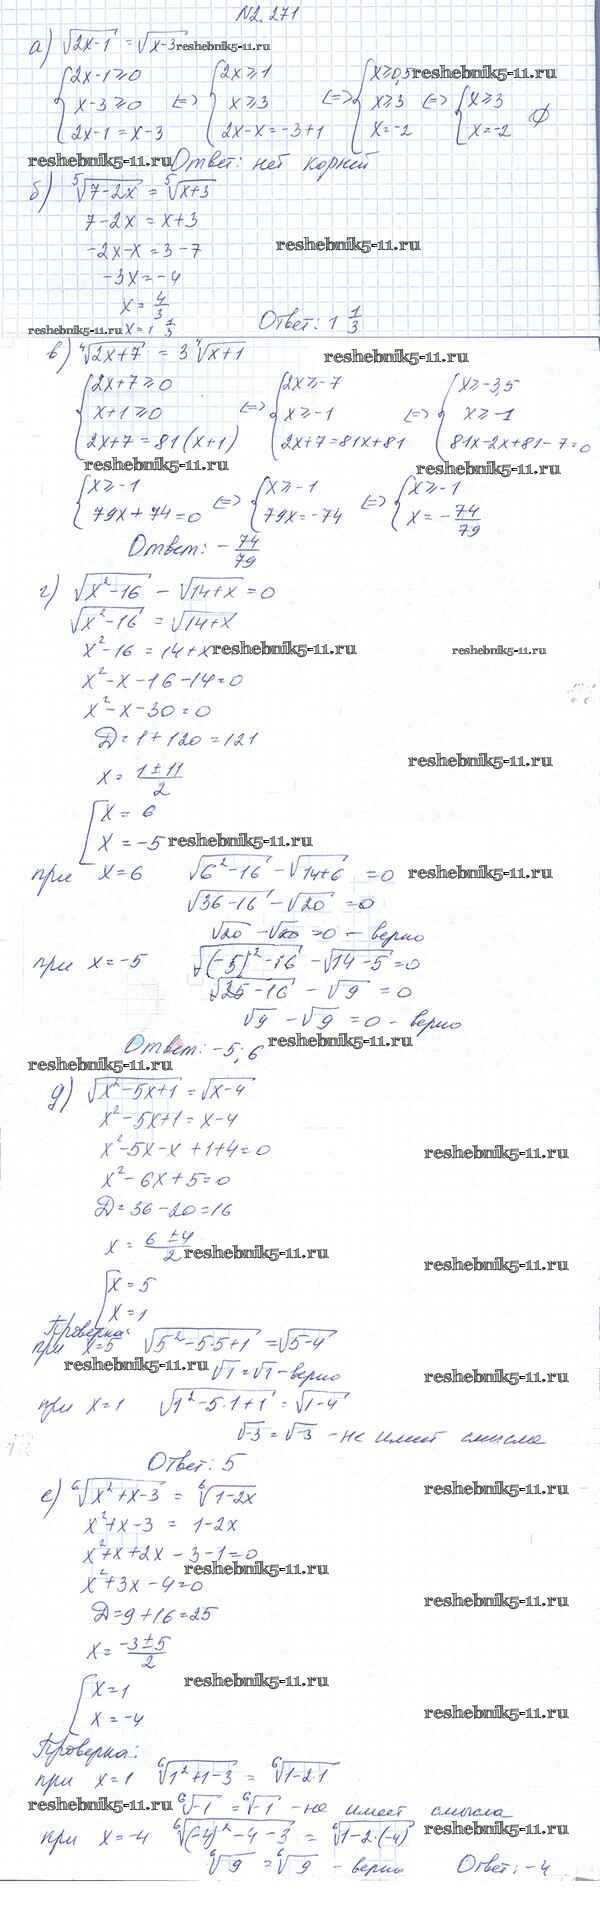 №2.271
а) √(2x-1) = √(x-3) reshebnik5-11.ru
{2x-1≥0 {2x≥1 {x≥0,5 reshebnik5-11.ru
x-3≥0 <=> x≥3 <=> x≥3 <=> {x≥3
2x-1=x-3 2x-x=-3+1 x=-2 x=-2 ∅
reshebnik5-11.ru Ответ: нет корней
б) ⁵√(7-2x) = ⁵√(x+3)
7-2x = x+3
-2x-x=3-7 reshebnik5-11.ru
-3x=-4
x=4/3
reshebnik5-11.ru x=1 1/3 Ответ: 1 1/3
в) ⁴√(2x+7) = 3 ⁴√(x+1) reshebnik5-11.ru
{2x+7≥0 {2x≥-7 {x≥-3,5
x+1≥0 <=> x≥-1 <=> x≥-1
2x+7=81(x+1) 2x+7=81x+81 81x-2x+81-7=0
reshebnik5-11.ru reshebnik5-11.ru
{x≥-1 <=> {x≥-1 <=> {x≥-1
79x+74=0 79x=-74 x=-74/79
Ответ: -74/79
г) √(x²-16) - √(14+x) =0
√(x²-16) = √(14+x)
x²-16=14+x reshebnik5-11.ru reshebnik5-11.ru
x²-x-16-14=0
x²-x-30=0
D=1+120=121
x= (1±11)/2 reshebnik5-11.ru
[x= 6
x=-5 reshebnik5-11.ru
при x=6 √(6²-16) - √(14+6) =0 reshebnik5-11.ru
√(36-16) - √20 =0
√20 - √20 =0 - верно
при x=-5 √((-5)²-16) - √(14-5) =0
√(25-16) - √9 =0
√9 - √9 =0 - верно
Ответ: -5; 6 reshebnik5-11.ru
reshebnik5-11.ru
д) √(x²-5x+1) = √(x-4)
x²-5x+1=x-4
x²-5x-x+1+4=0 reshebnik5-11.ru
x²-6x+5=0
D=36-20=16
x= (6±4)/2 reshebnik5-11.ru reshebnik5-11.ru
[x=5
x=1
Проверка:
при x=5 √(5²-5·5+1) = √(5-4)
reshebnik5-11.ru √1=√1 - верно reshebnik5-11.ru
при x=1 √(1²-5·1+1) = √(1-4)
√-3 = √-3 - не имеет смысла
Ответ: 5
е) ⁶√(x²+x-3) = ⁶√(1-2x) reshebnik5-11.ru
x²+x-3 = 1-2x
x²+x+2x-3-1=0
x²+3x-4=0 reshebnik5-11.ru
D=9+16=25 reshebnik5-11.ru
x= (-3±5)/2
[x=1 reshebnik5-11.ru
x=-4 reshebnik5-11.ru
Проверка:
при x=1 ⁶√(1²+1-3) = ⁶√(1-2·1)
reshebnik5-11.ru ⁶√-1 = ⁶√-1 - не имеет смысла
при x=-4 ⁶√((-4)²-4-3) = ⁶√(1-2·(-4)) reshebnik5-11.ru
⁶√9 = ⁶√9 - верно Ответ: -4